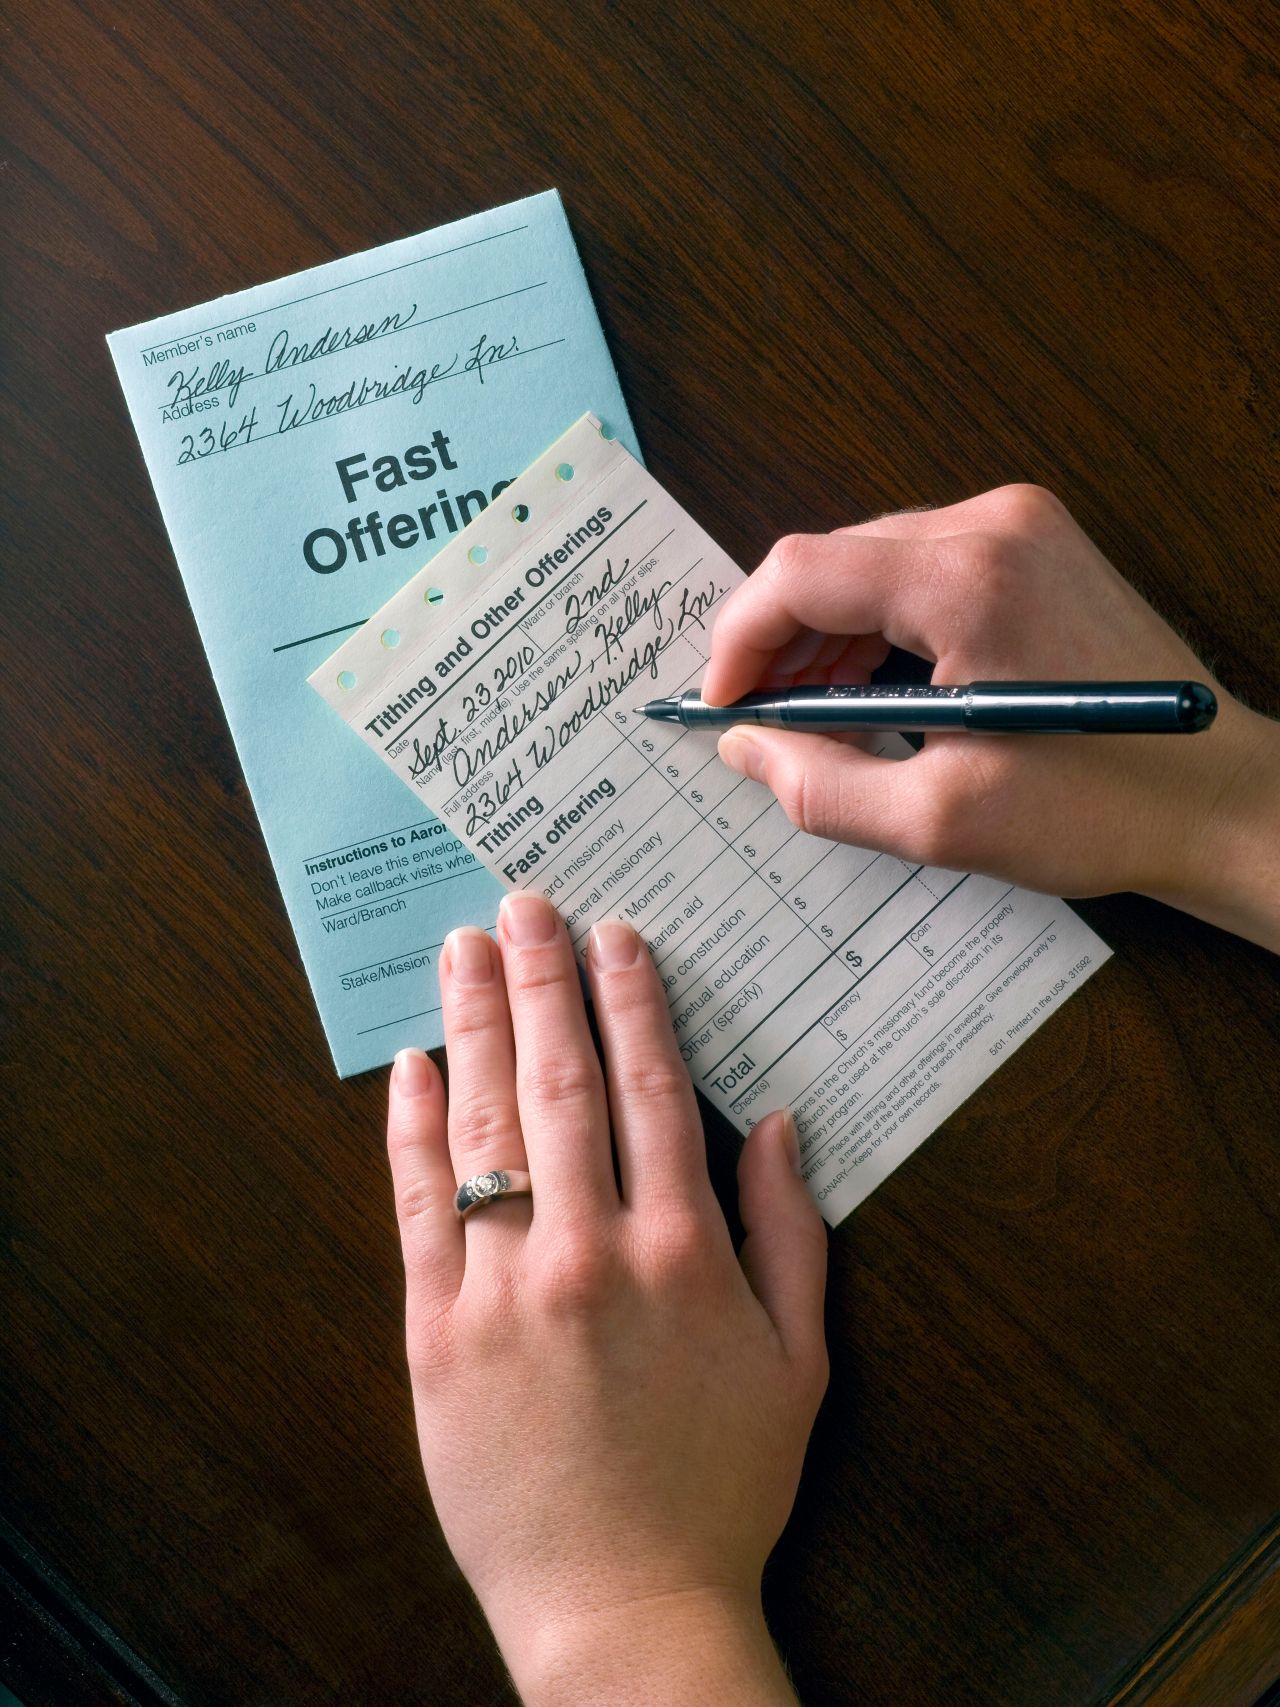 Member's name
Kelly Andersen
Address
2364 Woodbridge Ln.
Fast
Offering
Instructions to Aaro
Don't leave this envelop
Make callback visits whe
Ward/Branch
Stake/Mission
Tithing and Other Offerings
Date
Ward or branch
Sept. 23 2010
2nd
Name (last, first, middle) Use the same spelling on all your slips.
Andersen, Kelly
Full address
2364 Woodbridge Ln.
Tithing $
Fast offering $
ard missionary $
eneral missionary $
f Mormon $
itarian aid $
ple construction $
rpetual education $
Other (specify) $
$
Total $
Check(s) Currency Coin
$ $ $
ations to the Church's missionary fund become the property
Church to be used at the Church's sole discretion in its
sionary program.
WHITE—Place with tithing and other offerings in envelope. Give envelope only to
a member of the bishopric or branch presidency.
CANARY—Keep for your own records.
5/01. Printed in the USA. 31592
PILOT V BALL EXTRA FINE